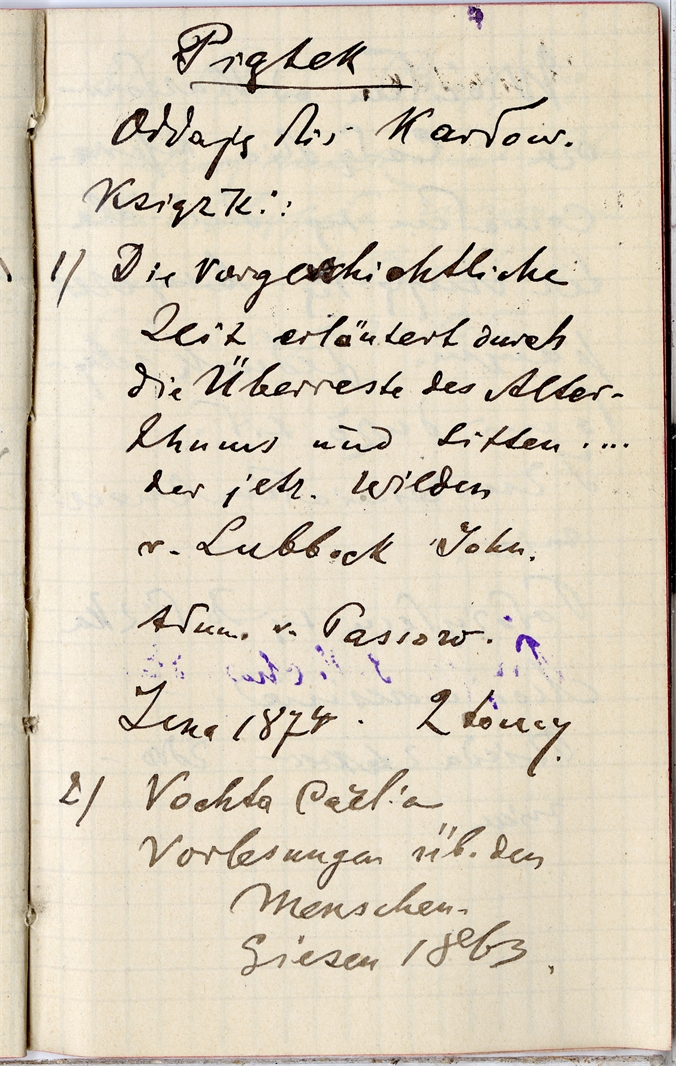 Piątek
Oddaję dziś Karłow.
Książki:
1) Die vorgeschichtliche
Zeit erläutert durch
die Überreste des Alter-
thums und Sitten ....
der jetz. Wilden
v. Lubbock John.
v. Passow.
Jena 1874. 2 tomy.
2) Vochta Carl'a
Vorlesungen üb. den
Menschen.
Giesen 1863.